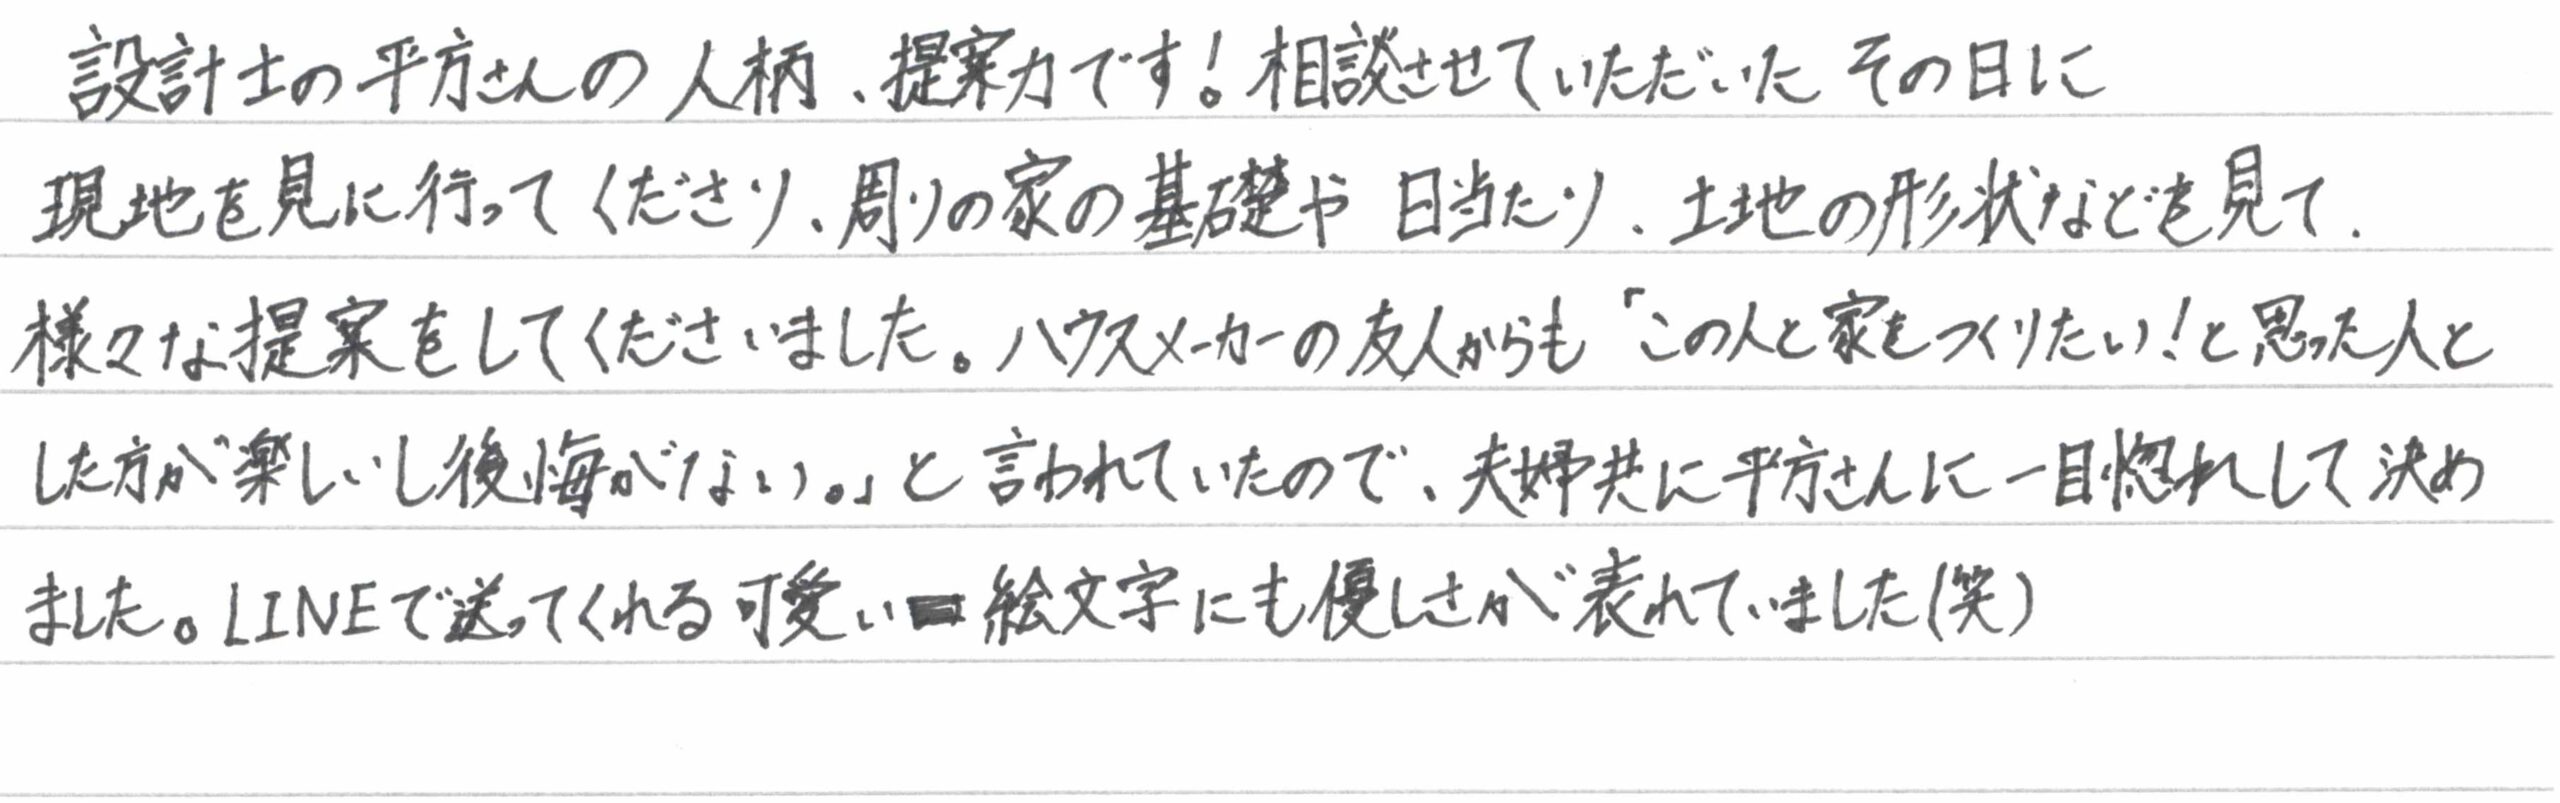 設計士の平方さんの人柄、提案力です!相談させていただいたその日に
現地を見に行ってくださり、周りの家の基礎や日当たり、土地の形状などを見て、
様々な提案をしてくださいました。ハウスメーカーの友人からも「この人と家をつくりたい!と思った人と
した方が楽しいし後悔がない。」と言われていたので、夫婦共に平方さんに一目惚れして決め
ました。LINEで送ってくれる可愛い絵文字にも優しさが表れていました(笑)